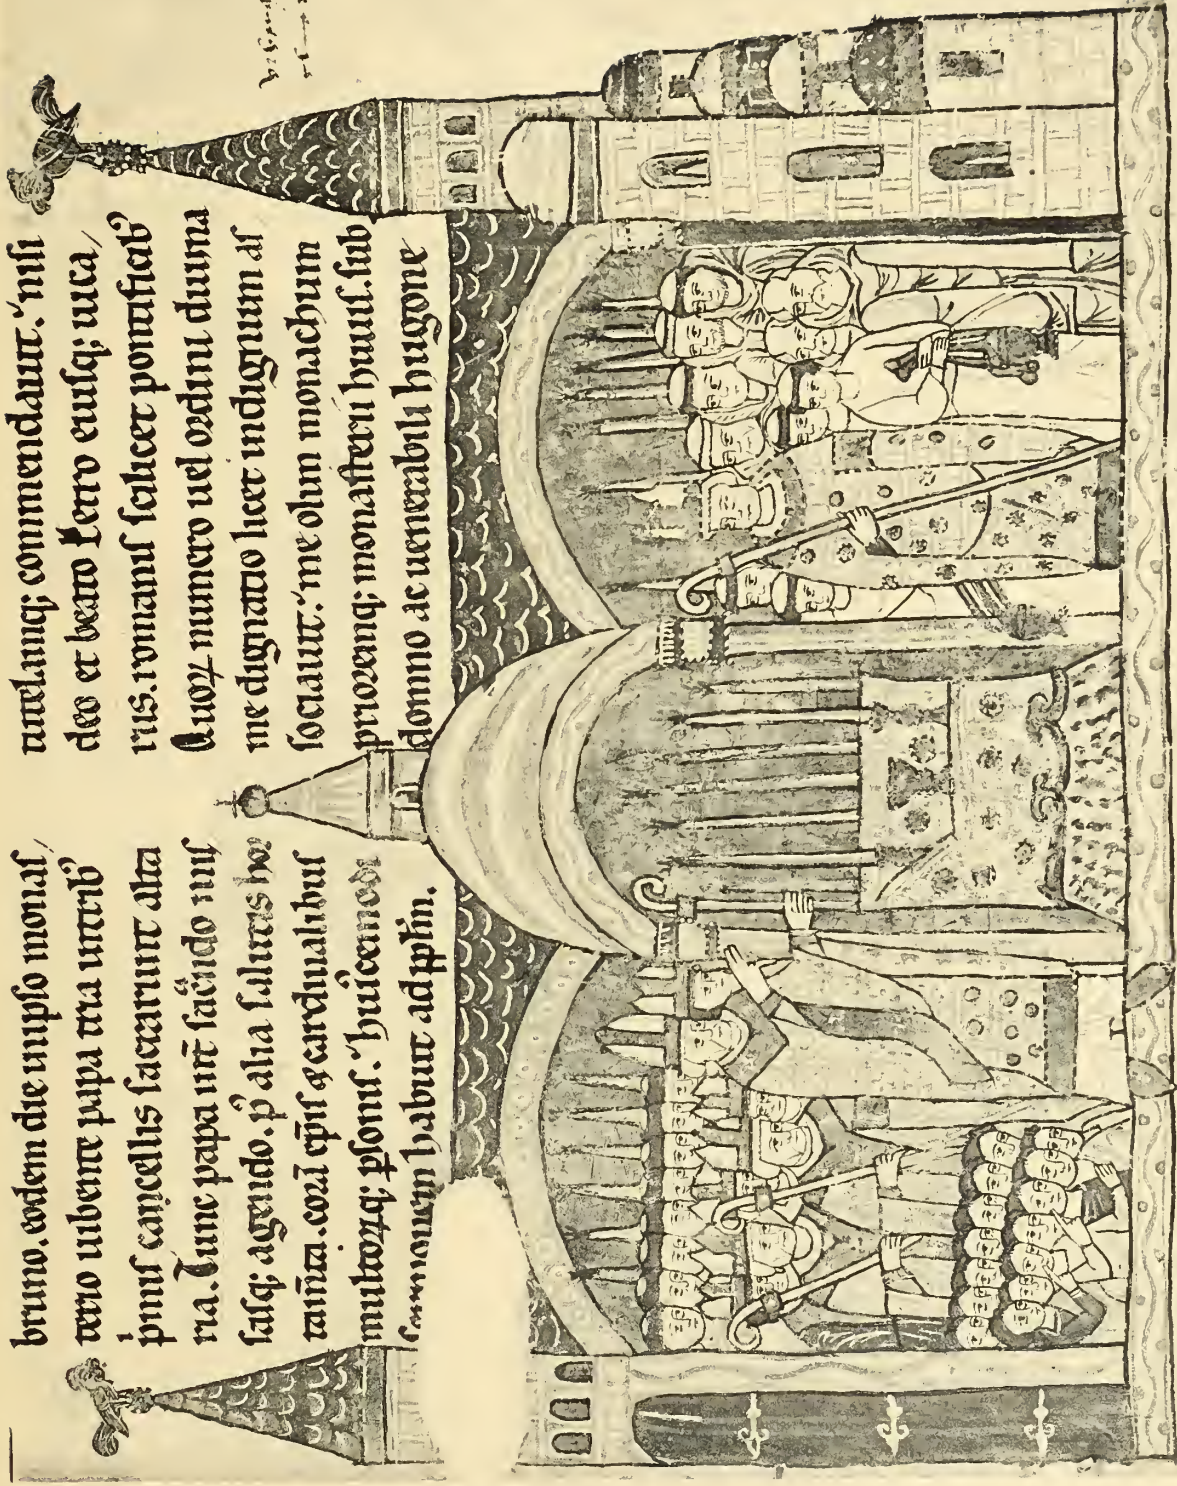 bruno. eodem die in ipso monas/
terio iubente papa tria in trib’
p̍mis cancellis sacrarunt alta
ria. Tunc papa int̄ sac̄ndo mis
sasq; agendo. p’ alia salutis hor
tam̄ta. corā ep̄is & cardinalibus
multorꝝq; p̱sonis. huiꝰcemodi
sermonem habuit ad pp̄lm.
tutelamq; commendauit. nisi
deo et beato Petro eiusq; uica/
riis. romanis scilicet pontificib’
Quoꝝ numero uel ordini diuina
me dignatio licet indignum as
sociauit. me olim monachum
prioremq; monasterii huius. sub
domno ac uenerabili hugone